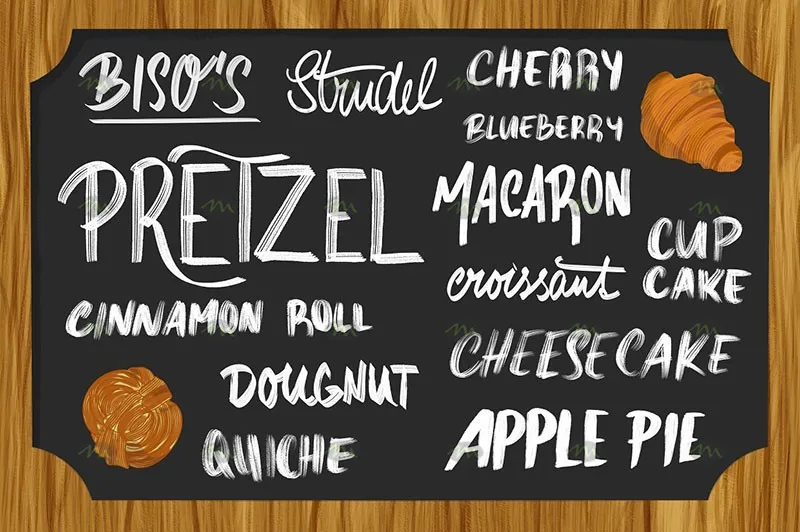 BISO'S
Strudel
CHERRY
BLUEBERRY
PRETZEL
MACARON
CUP
CAKE
croissant
CINNAMON ROLL
CHEESECAKE
DOUGNUT
APPLE PIE
QUICHE